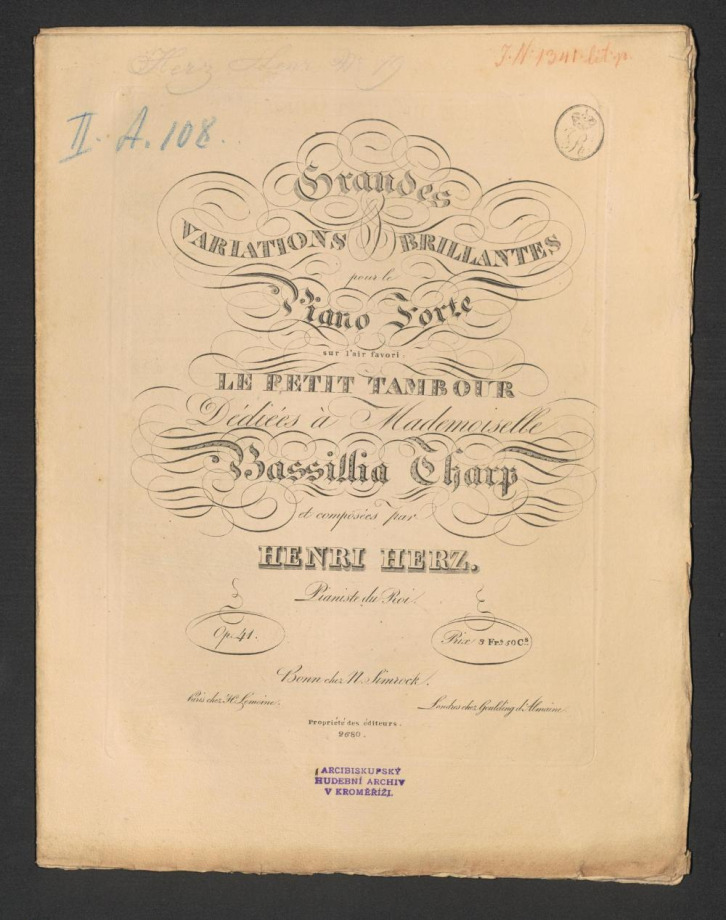 Herz Henr. N° 79
J. N. 1341. lit. p.
II. A. 108.
R
Grandes
VARIATIONS BRILLANTES
pour le
Piano Forte
sur l'air favori.
LE PETIT TAMBOUR
Dédiées à Mademoiselle
Bassillia Tharp
et composées par
HENRI HERZ.
Pianiste du Roi
Op. 41.
Prix 3 Frs 50 Cs
Bonn chez N. Simrock.
Paris chez H. Lemoine.
Londres chez Goulding d'Almaine.
Propriété des éditeurs.
2680.
ARCIBISKUPSKÝ
HUDEBNÍ ARCHIV
V KROMĚŘÍŽI.